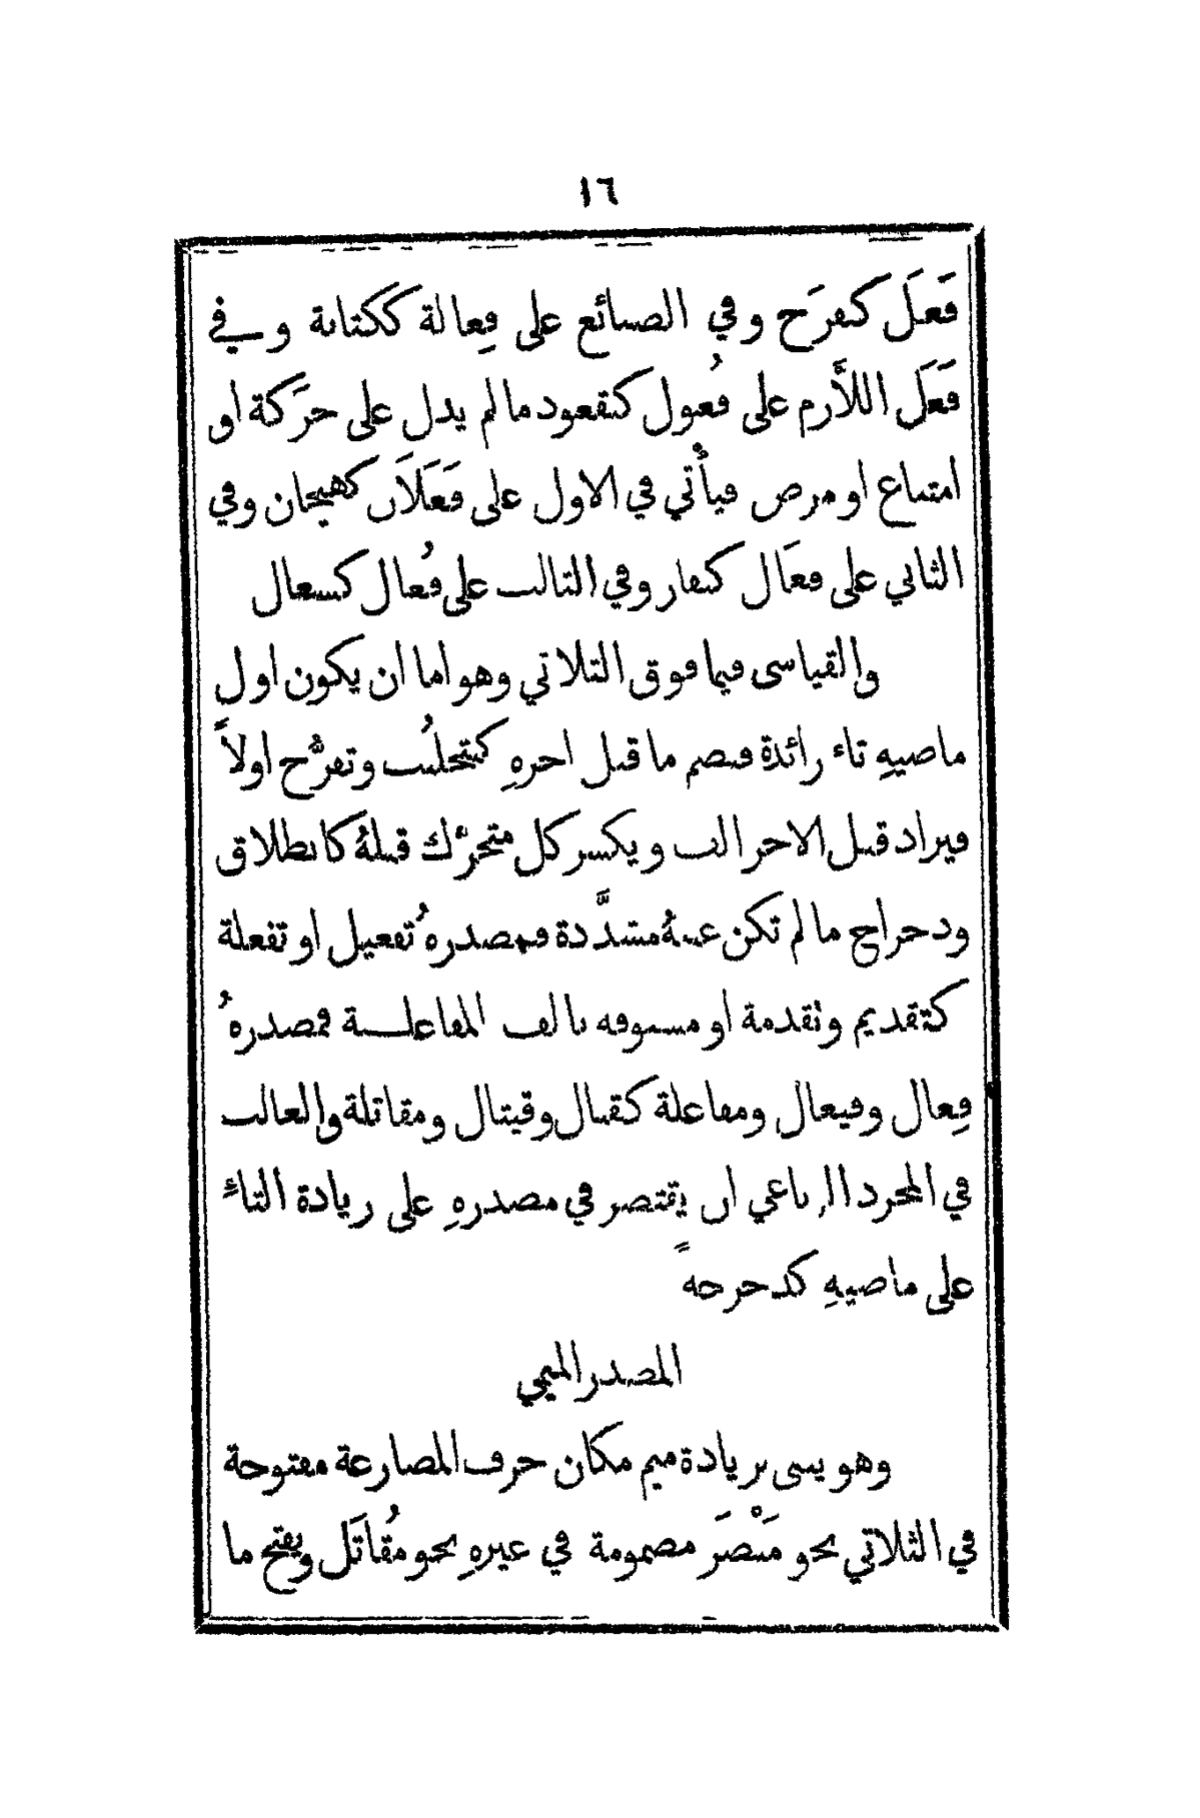 ١٦
فَعَلَ كفرَح وفي الصنائع على فِعالة ككتابة وفي
فَعَل اللاَّزم على فُعول كقعود ما لم يدل على حرَكة او
امتناع او مرض فيأْتي في الاول على فَعَلاَن كهيجان وفي
الثاني على فعَال كنفار وفي الثالث على فُعال كسعال
والقياسى فيما فوق الثلاثي وهو اما ان يكون اول
ماضيهِ تاء زائدة فيضم ما قبل اخرهِ كتجلبُب وتفرُّح اولاً
فيزاد قبل الاخر الف ويكسر كل متحرّك قبلهُ كانطلاق
ودحراج ما لم تكن عينهُ مشدَّدة فمصدرهُ تفعيل او تفعلة
كتقديم وتقدمة او مسبوقه بالف المفاعلة فمصدرهُ
فِعال وفيعال ومفاعلة كقتال وقيتال ومقاتلة والغالب
في المجرد الرباعي ان يقتصر في مصدرهِ على زيادة التاءِ
على ماضيهِ كدحرجةً
المصدر الميمي
وهو يبنى بزيادة ميم مكان حرف المضارعة مفتوحة
في الثلاثي نحو مَنْصَر مضمومة في غيرهِ نحو مُقاتَل ويفتح ما